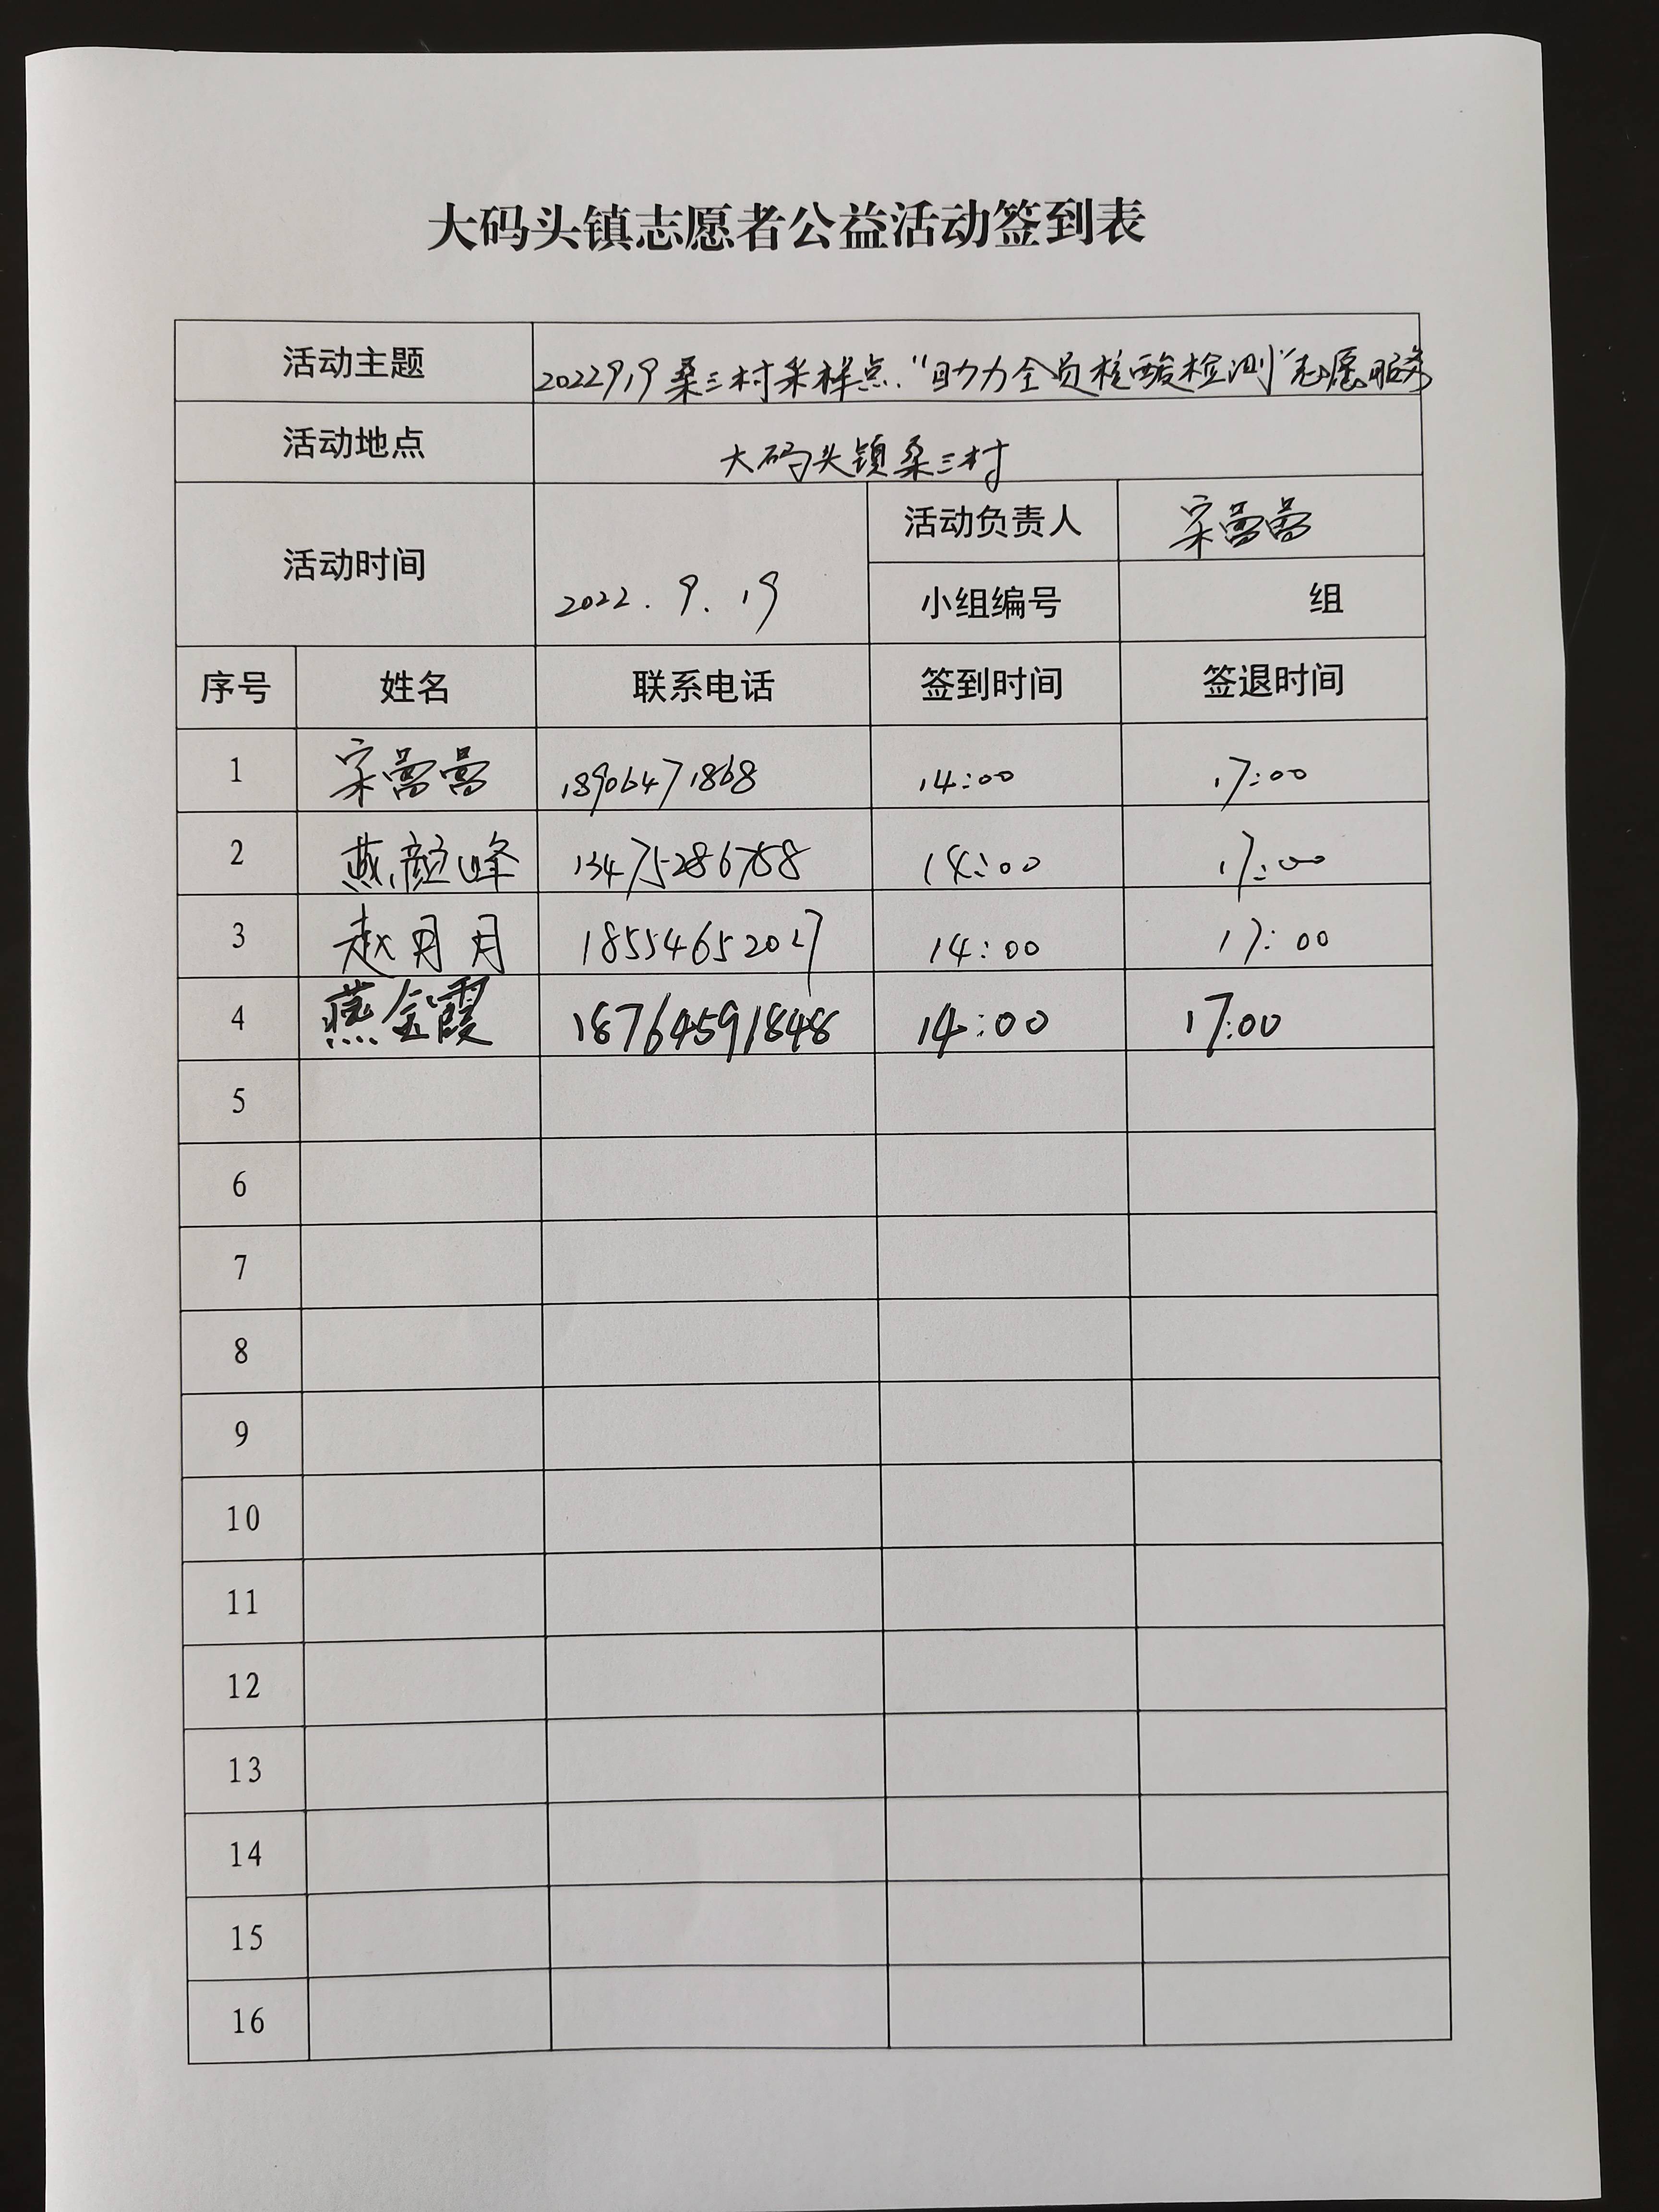 大码头镇志愿者公益活动签到表
活动主题 2022919桑三村采样点."助力全员核酸检测"志愿服务
活动地点 大码头镇桑三村
活动时间 2022.9.19 活动负责人
小组编号 组
序号 姓名 联系电话 签到时间 签退时间
1 18906471868 14:00 17:00
2 燕颜峰 13475286788 14:00 17:00
3 赵月月 18554652027 14:00 17:00
4 燕金霞 18764591848 14:00 17:00
5
6
7
8
9
10
11
12
13
14
15
16